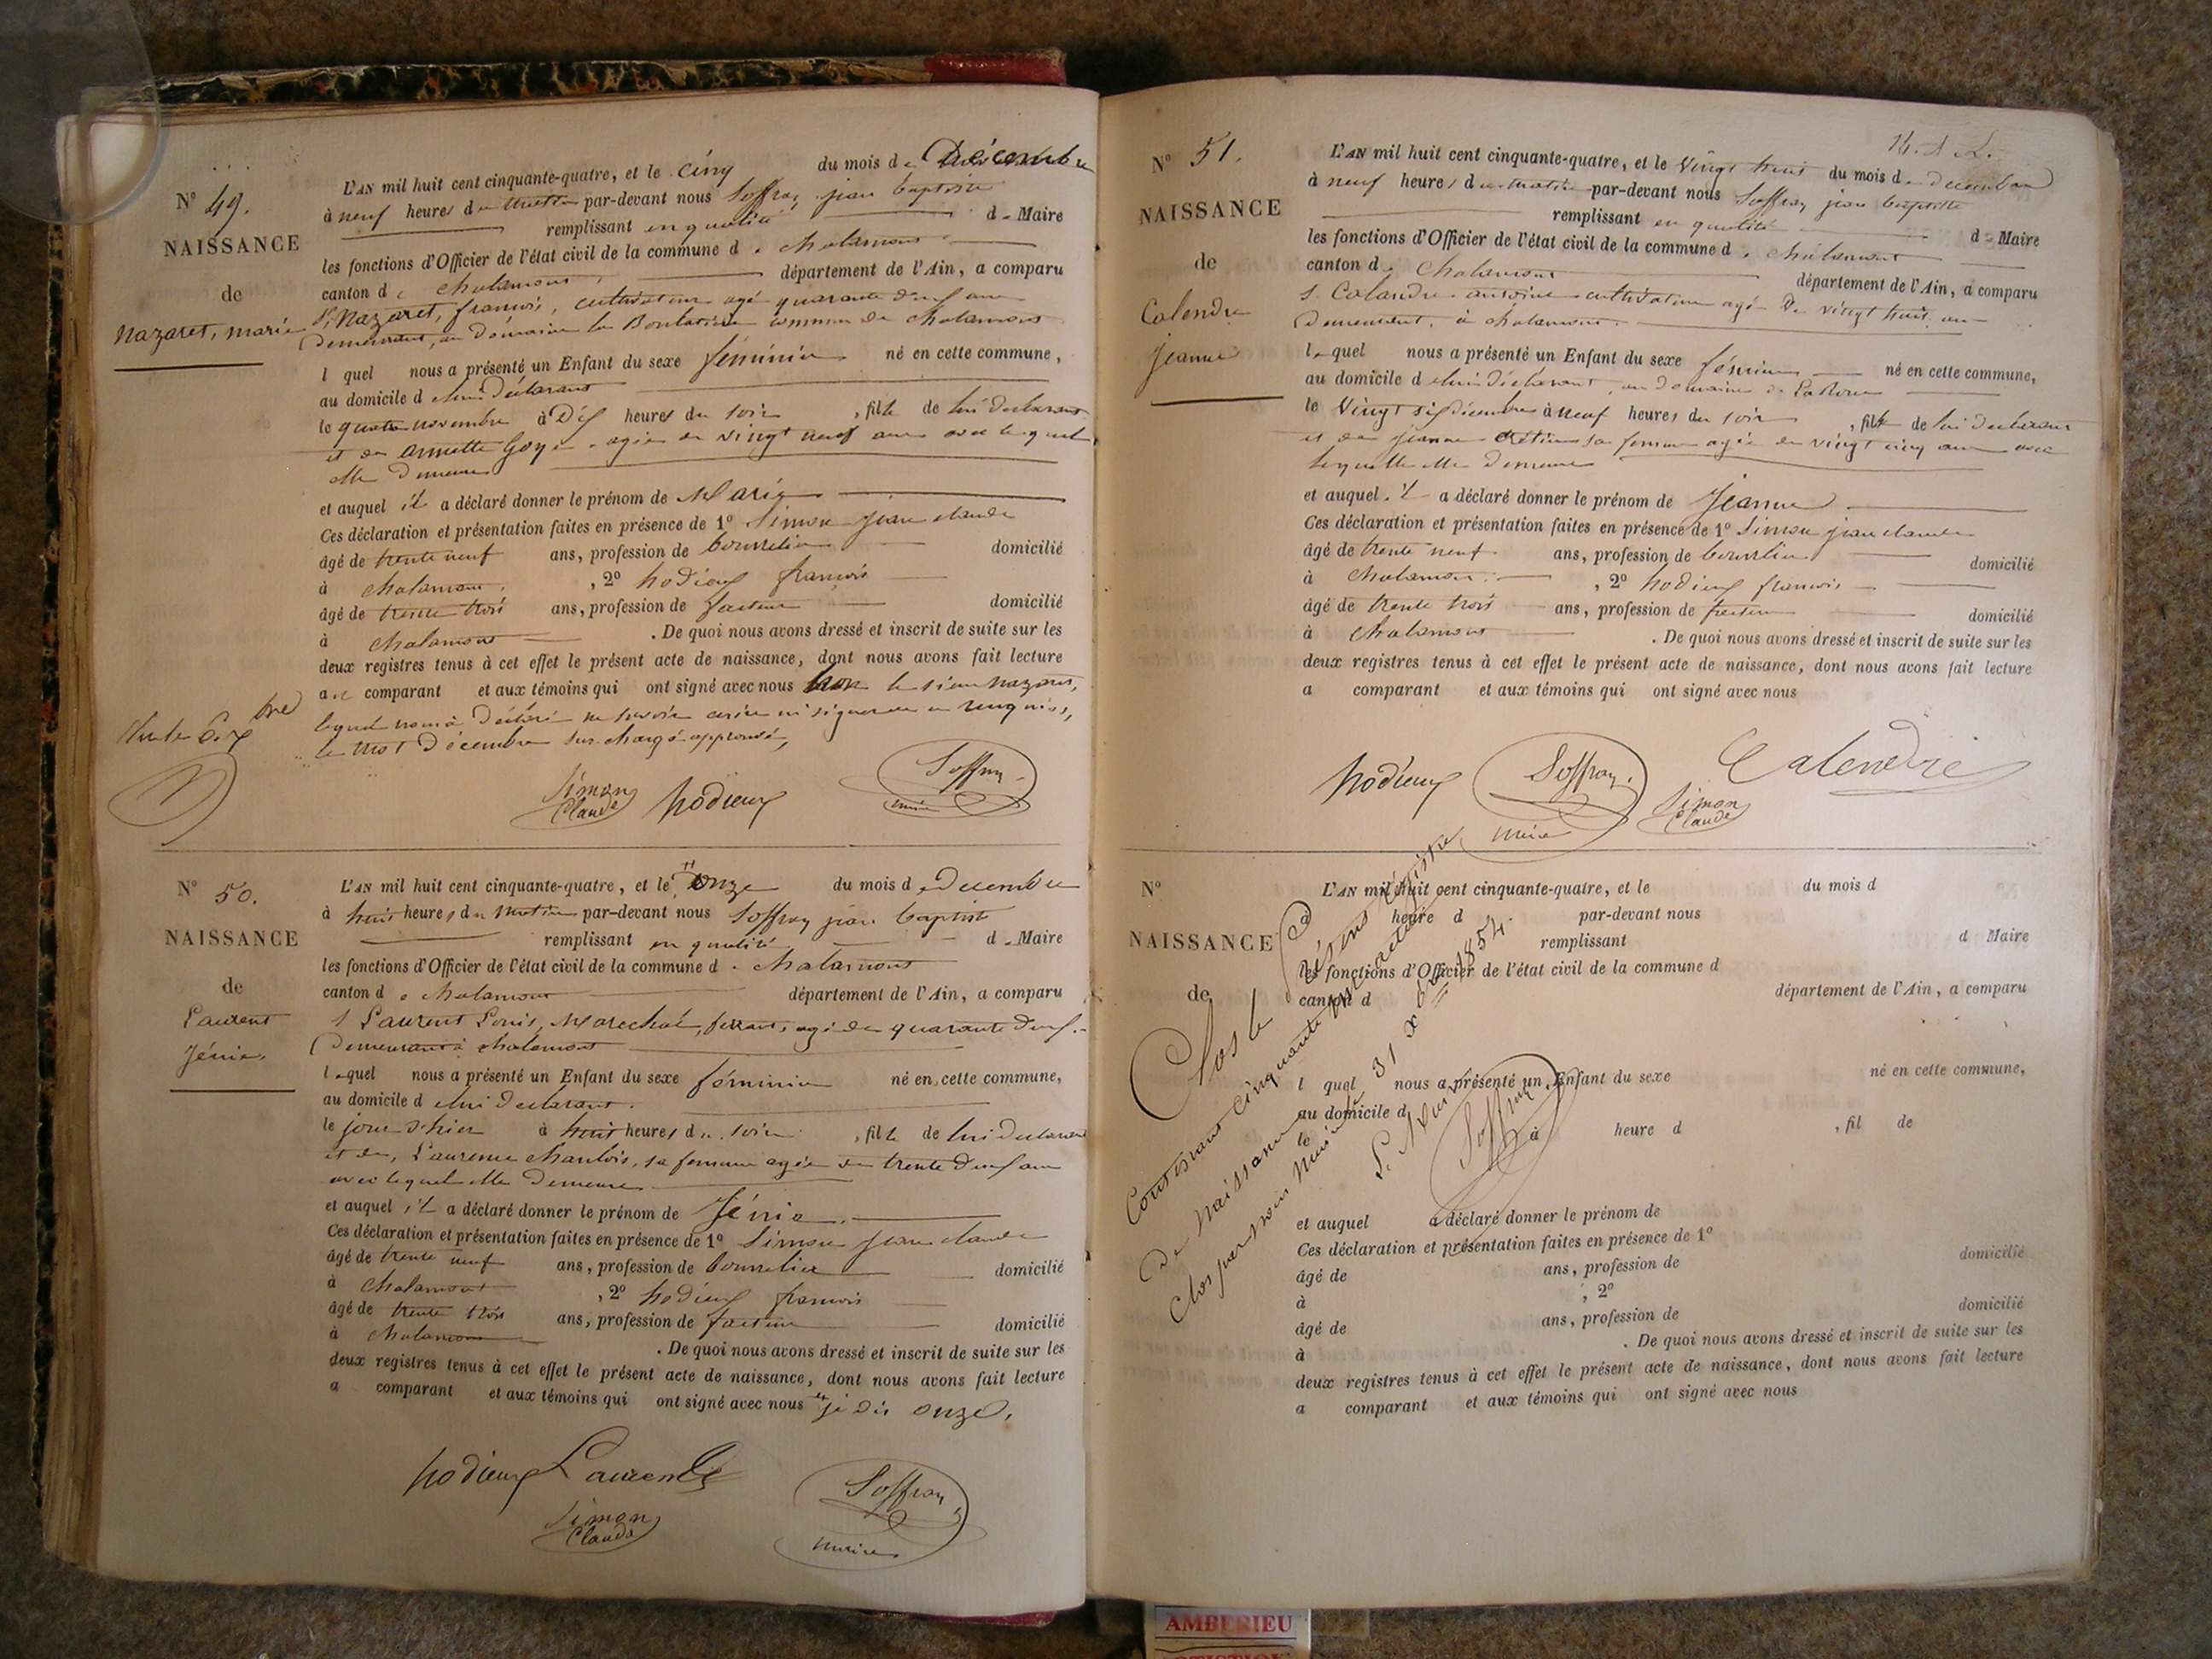 N° 49.
NAISSANCE
de
Nazaret, marie
L'AN mil huit cent cinquante-quatre, et le cinq du mois de Décembre
à neuf heures du matin par-devant nous Soffray jean baptiste
remplissant en qualité de Maire
les fonctions d'Officier de l'état civil de la commune de chalamont
canton de chalamont, département de l'Ain, a comparu
s. Nazaret, francois, cultivateur agé quarante deux ans
demeurant, au Domaine la commune de chalamont
l quel nous a présenté un Enfant du sexe féminin né en cette commune,
au domicile de lui déclarant
le quatre novembre à Dix heures du soir, fille de lui déclarant
et de annette Goy agée de vingt neuf ans avec lequel
elle demeure
et auquel il a déclaré donner le prénom de Marie
Ces déclaration et présentation faites en présence de 1° Simon jean claude
âgé de trente neuf ans, profession de bourrelier domicilié
à chalamont, 2° hodieux francois
âgé de trente trois ans, profession de facteur domicilié
à chalamont. De quoi nous avons dressé et inscrit de suite sur les
deux registres tenus à cet effet le présent acte de naissance, dont nous avons fait lecture
au comparant et aux témoins qui ont signé avec nous non le sieur nazaret,
lequel nous a déclaré ne savoir ecrire ni signer de ce requis,
le mot Décembre surchargé approuvé,
Simon Claude
hodieux
Soffray
maire
N° 50.
NAISSANCE
de
Laurent
Jénie.
L'AN mil huit cent cinquante-quatre, et le onze du mois de Decembre
à huit heures du matin par-devant nous Soffray jean baptiste
remplissant en qualité de Maire
les fonctions d'Officier de l'état civil de la commune de chalamont
canton de chalamont département de l'Ain, a comparu
s Laurent Louis, Marechal, ferrant, agé de quarante deux
demeurant à chalamont
lequel nous a présenté un Enfant du sexe féminin né en cette commune,
au domicile de lui declarant.
le jour d'hier à huit heures du soir, fille de lui declarant
et de, Laurence, sa femme agée de trente deux ans
avec lequel elle demeure
et auquel il a déclaré donner le prénom de Jénie.
Ces déclaration et présentation faites en présence de 1° Simon jean claude
âgé de trente neuf ans, profession de bourrelier domicilié
à chalamont, 2° hodieux francois
âgé de trente trois ans, profession de facteur domicilié
à chalamont. De quoi nous avons dressé et inscrit de suite sur les
deux registres tenus à cet effet le présent acte de naissance, dont nous avons fait lecture
a comparant et aux témoins qui ont signé avec nous je dis onze.
hodieux Laurent
Simon Claude
Soffray
maire
N° 51.
NAISSANCE
de
Calendre
Jeanne
L'AN mil huit cent cinquante-quatre, et le Vingt huit du mois de Decembre
à neuf heures du matin par-devant nous Soffray jean baptiste
remplissant en qualité de Maire
les fonctions d'Officier de l'état civil de la commune de chalamont
canton de Chalamont département de l'Ain, a comparu
s. Calandre antoine cultivateur agé de vingt huit ans
demeurant, à chalamont.
lequel nous a présenté un Enfant du sexe féminin né en cette commune,
au domicile de lui déclarant, au domaine de
le Vingt six Décembre à neuf heures du soir, fille de lui declarant
et de jeanne sa femme agée de vingt cinq ans avec
lequelle elle demeure
et auquel il a déclaré donner le prénom de Jeanne
Ces déclaration et présentation faites en présence de 1° Simon jean claude
âgé de trente neuf ans, profession de bourrelier domicilié
à chalamont, 2° hodieux francois
âgé de trente trois ans, profession de facteur domicilié
à chalamont. De quoi nous avons dressé et inscrit de suite sur les
deux registres tenus à cet effet le présent acte de naissance, dont nous avons fait lecture
a comparant et aux témoins qui ont signé avec nous
hodieux
Soffray
maire
Simon Claude
Calendre
N°
NAISSANCE
de
L'AN mil huit cent cinquante-quatre, et le du mois d
à heure d par-devant nous
remplissant d Maire
les fonctions d'Officier de l'état civil de la commune d
canton d département de l'Ain, a comparu
l quel nous a présenté un Enfant du sexe né en cette commune,
au domicile d
le à heure d, fil de
et auquel a déclaré donner le prénom de
Ces déclaration et présentation faites en présence de 1°
âgé de ans, profession de domicilié
à, 2°
âgé de ans, profession de domicilié
à. De quoi nous avons dressé et inscrit de suite sur les
deux registres tenus à cet effet le présent acte de naissance, dont nous avons fait lecture
a comparant et aux témoins qui ont signé avec nous
Clos le présent régistre
Contenant cinquante un actes
de Naissance
Clos par nous Maire le 31 Xbre 1854.
Soffray
AMBERIEU